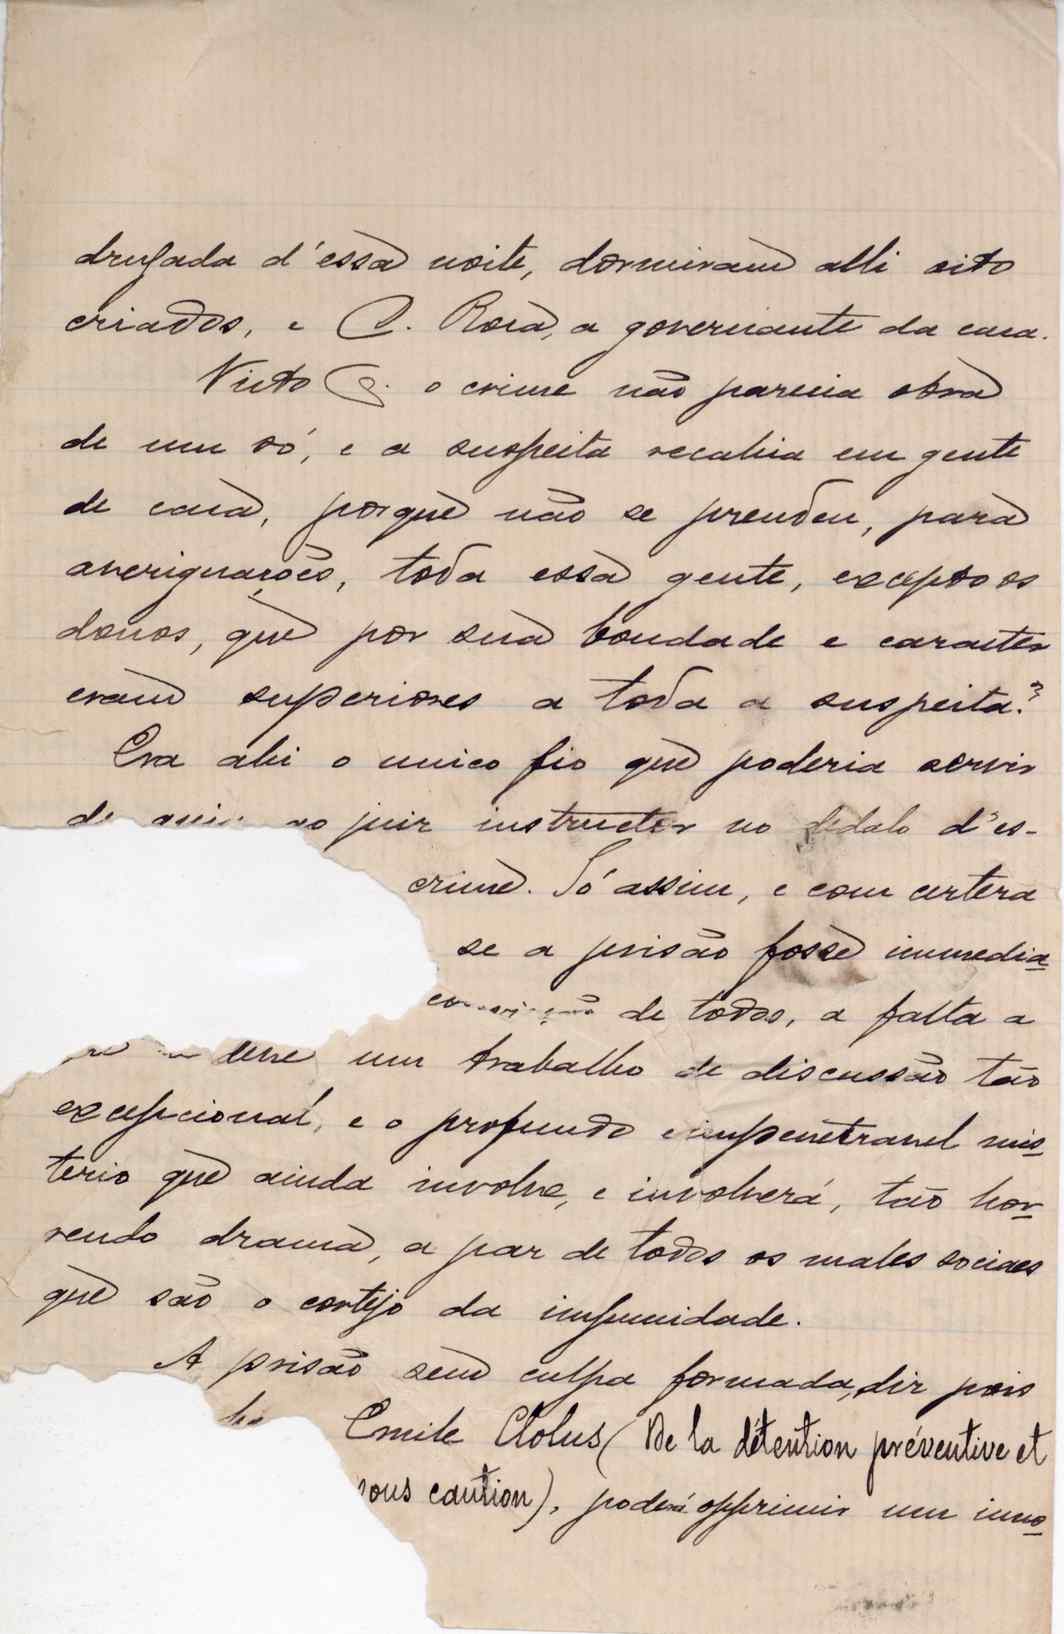 drugada d'essa noite, dormiram alli oito
criados, e D. Rosa, a governante da casa.
Visto q. o crime não parecia obra
de um só, e a suspeita recahia em gente
de casa, porque não se prendeu, para
averiguações, toda essa gente, excepto os
donos, que por sua bondade e caracter
eram superiores a toda a suspeita?
Era ahi o unico fio que poderia servir
de guia ao juiz instructor no dedalo d'es-
crime. Só assim, e com certeza
se a prisão fosse immedia
convicção de todos, a falta a
deve um trabalho de discussão tão
excepcional, e o profundo e impenetravel mis
terio que ainda involve, e involverá, tão hor
rendo drama, a par de todos os males sociaes
que são o cortejo da impunidade.
A prisão sem culpa formada, diz pois
Emile Clolus (De la détention préventive et
sous caution), poderá opprimir um inno